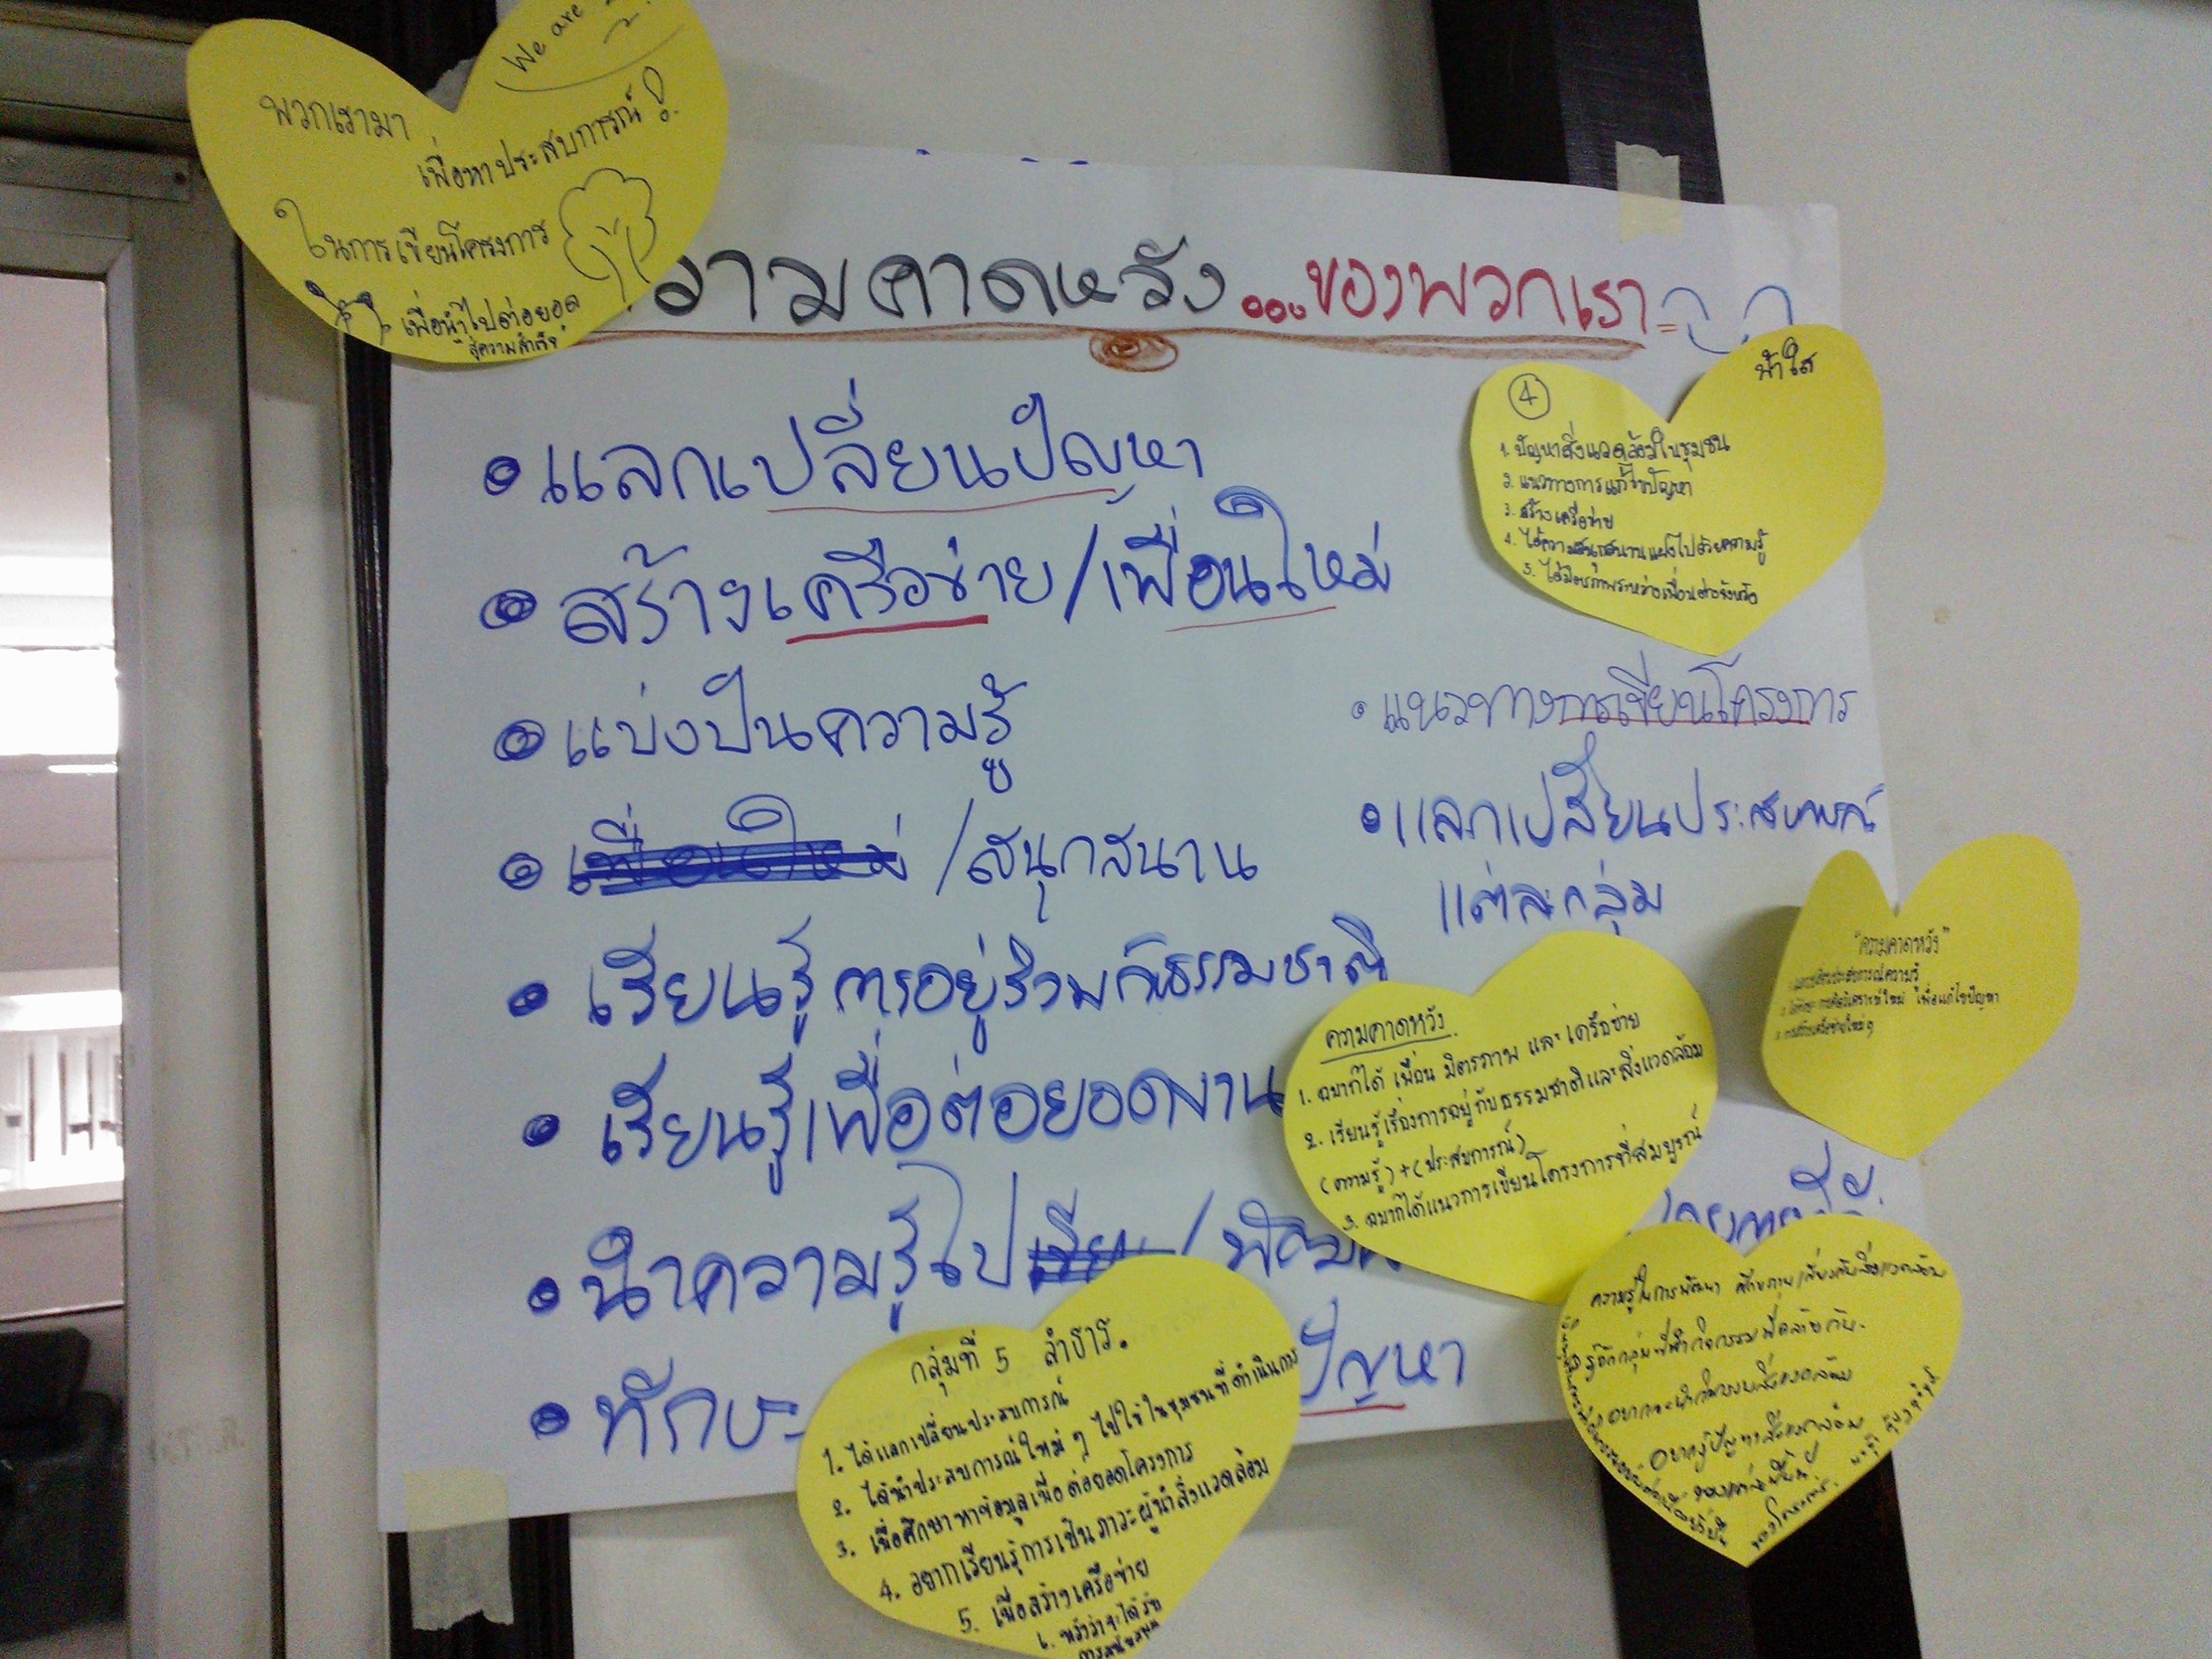 We are
พวกเรามา
เพื่อหาประสบการณ์!
ในการเขียนโครงการ
เพื่อนำไปต่อยอด
สู่ความสำเร็จ
วามคาดหวัง...ของพวกเรา
• แลกเปลี่ยนปัญหา
• สร้างเครือข่าย/เพื่อนใหม่
• แบ่งปันความรู้
• เพื่อนใหม่ /สนุกสนาน
• เรียนรู้การอยู่ร่วมกับธรรมชาติ
• เรียนรู้เพื่อต่อยอดงาน
• นำความรู้ไป
• ทักษะ
ปัญหา
• แนวทางการเขียนโครงการ
• แลกเปลี่ยนประสบการณ์
แต่ละกลุ่ม
4
ฟ้าใส
1. ปัญหาสิ่งแวดล้อมในชุมชน
2. แนวทางการแก้ไขปัญหา
3. สร้างเครือข่าย
4. ได้ความสนุกสนานแฝงไปด้วยความรู้
5. ได้มิตรภาพระหว่างเพื่อนต่างจังหวัด
"ความคาดหวัง"
เพื่อแก้ไขปัญหา
ความคาดหวัง
1. อยากได้ เพื่อน มิตรภาพ และ เครือข่าย
2. เรียนรู้เรื่องการอยู่กับธรรมชาติและสิ่งแวดล้อม
(ความรู้)+(ประสบการณ์)
3. อยากได้แนวการเขียนโครงการที่สมบูรณ์
กลุ่มที่ 5 ลำธาร.
1. ได้แลกเปลี่ยนประสบการณ์
2. ได้นำประสบการณ์ใหม่ ๆ ไปใช้ในชุมชนที่ดำเนินการ
3. เพื่อศึกษาหาข้อมูลเพื่อต่อยอดโครงการ
4. อยากเรียนรู้การเป็นภาวะผู้นำสิ่งแวดล้อม
5. เพื่อสร้างเครือข่าย
6. หวังว่าจะได้รับ
ความรู้ในการพัฒนา
รู้จักกลุ่มที่ทำกิจกรรมที่คล้ายกัน.